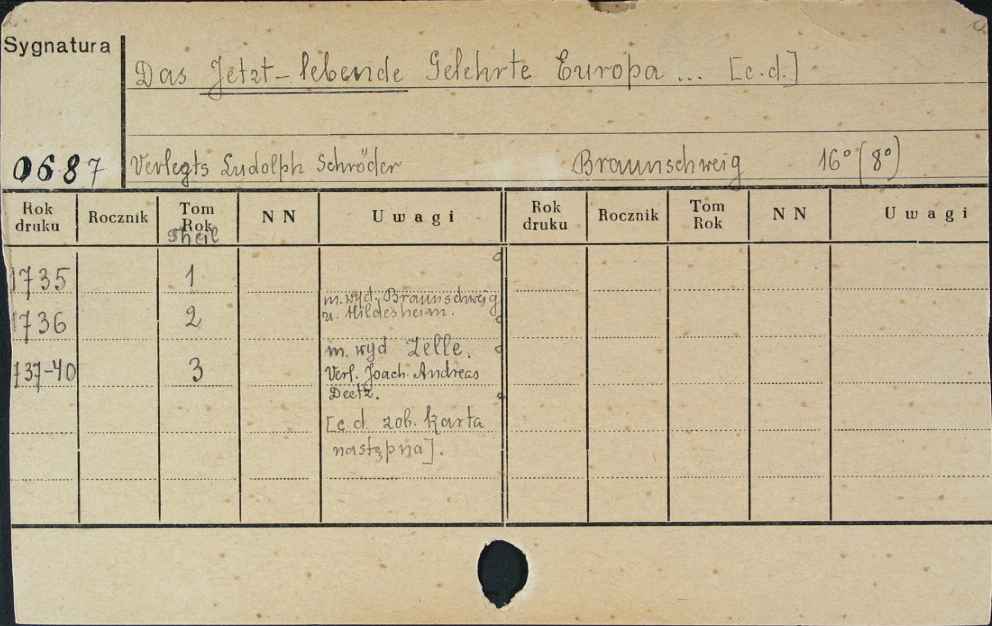 Sygnatura
Das Jetzt-lebende Gelehrte Europa ... [c.d.]
0687 Verlegts Ludolph Schröder Braunschweig 16° (8°)
Rok druku Rocznik Tom Rok Theil NN Uwagi Rok druku Rocznik Tom Rok NN Uwagi
1735 1
m. wyd. Braunschweig
1736 2 u. Hildesheim.
m. wyd Zelle.
1737-40 3 Verl. Joach. Andreas
Deetz.
[c.d. zob. karta
następna].